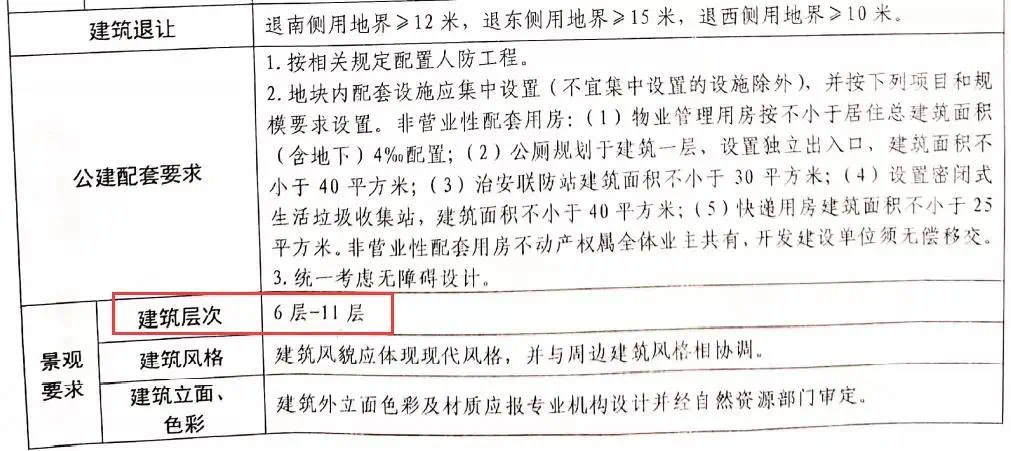 建筑退让
退南侧用地界≥12 米，退东侧用地界≥15 米，退西侧用地界≥10 米。
公建配套要求
1.按相关规定配置人防工程。
2.地块内配套设施应集中设置（不宜集中设置的设施除外），并按下列项目和规
模要求设置。非营业性配套用房：（1）物业管理用房按不小于居住总建筑面积
（含地下）4‰配置；（2）公厕规划于建筑一层，设置独立出入口，建筑面积不
小于 40 平方米；（3）治安联防站建筑面积不小于 30 平方米；（4）设置密闭式
生活垃圾收集站，建筑面积不小于 40 平方米；（5）快递用房建筑面积不小于 25
平方米。非营业性配套用房不动产权属全体业主共有，开发建设单位须无偿移交。
3.统一考虑无障碍设计。
景观
要求
建筑层次
6 层-11 层
建筑风格
建筑风貌应体现现代风格，并与周边建筑风格相协调。
建筑立面、
色彩
建筑外立面色彩及材质应报专业机构设计并经自然资源部门审定。